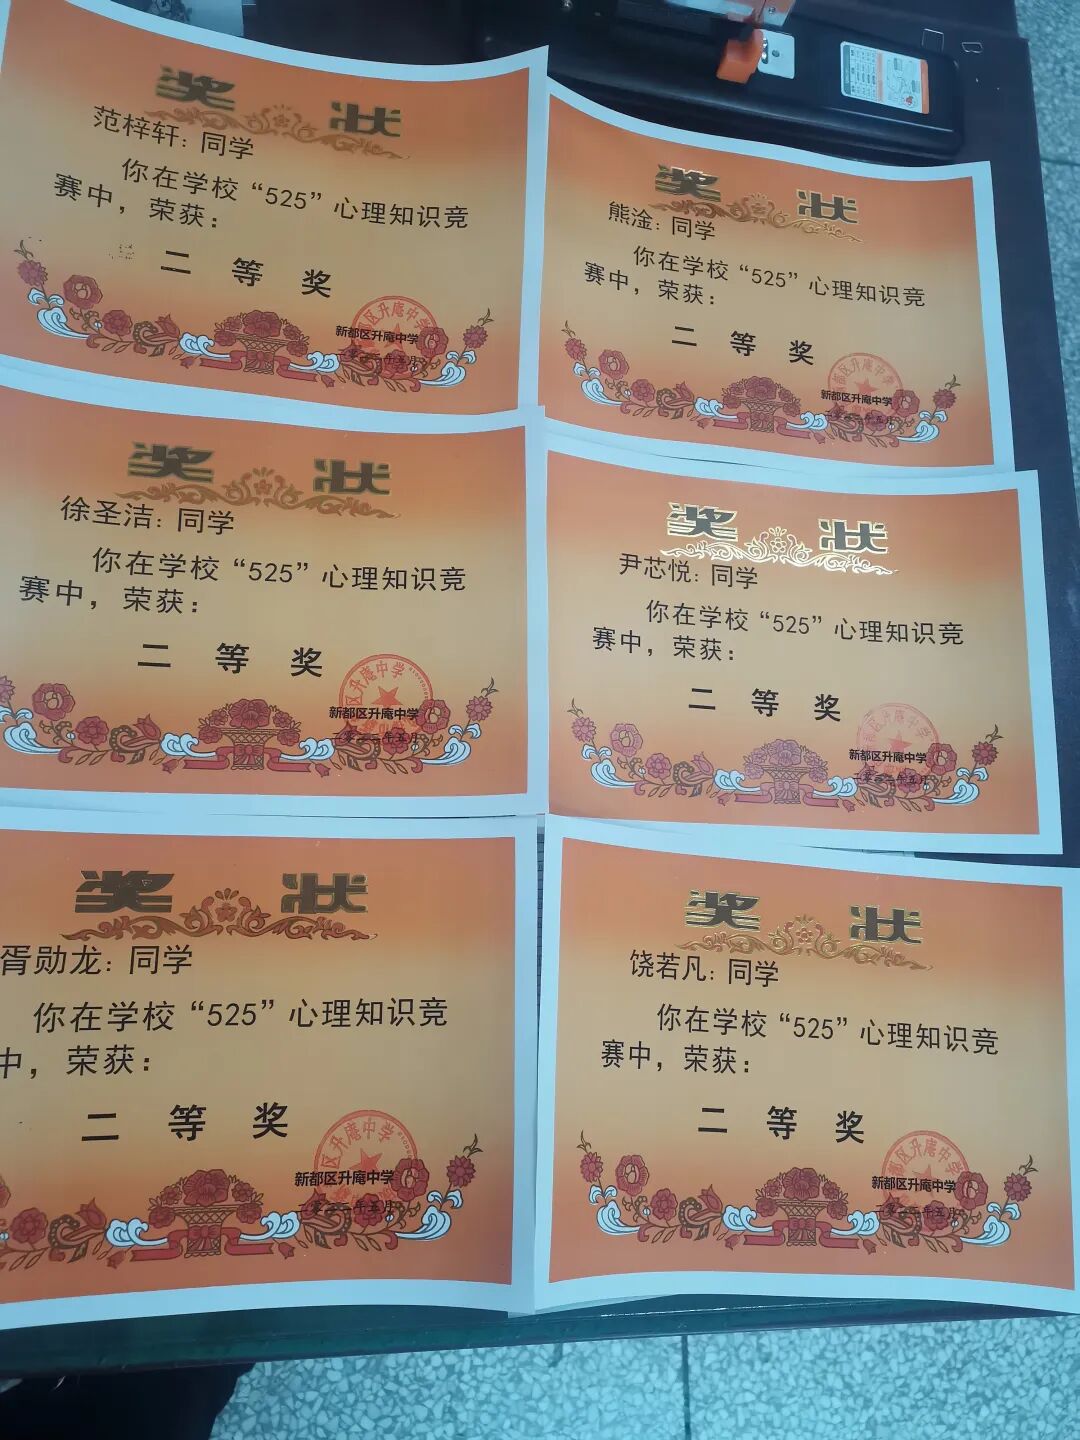 奖 状
范梓轩：同学
你在学校“525”心理知识竞
赛中，荣获：
二 等 奖
新都区升庵中学
二零二二年五月
奖 状
熊淦：同学
你在学校“525”心理知识竞
赛中，荣获：
二 等 奖
新都区升庵中学
二零二二年五月
奖 状
徐圣洁：同学
你在学校“525”心理知识竞
赛中，荣获：
二 等 奖
新都区升庵中学
二零二二年五月
奖 状
尹芯悦：同学
你在学校“525”心理知识竞
赛中，荣获：
二 等 奖
新都区升庵中学
二零二二年五月
奖 状
胥勋龙：同学
你在学校“525”心理知识竞
中，荣获：
二 等 奖
新都区升庵中学
二零二二年五月
奖 状
饶若凡：同学
你在学校“525”心理知识竞
赛中，荣获：
二 等 奖
新都区升庵中学
二零二二年五月